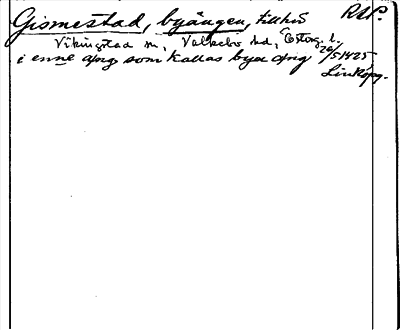 Gismestad, byängen, tillhör RAP.
Vikingstad sn, Valkebo hd, Östog. l.
i enne æng som kallas bya æng 26/5 1425
Linköpg.